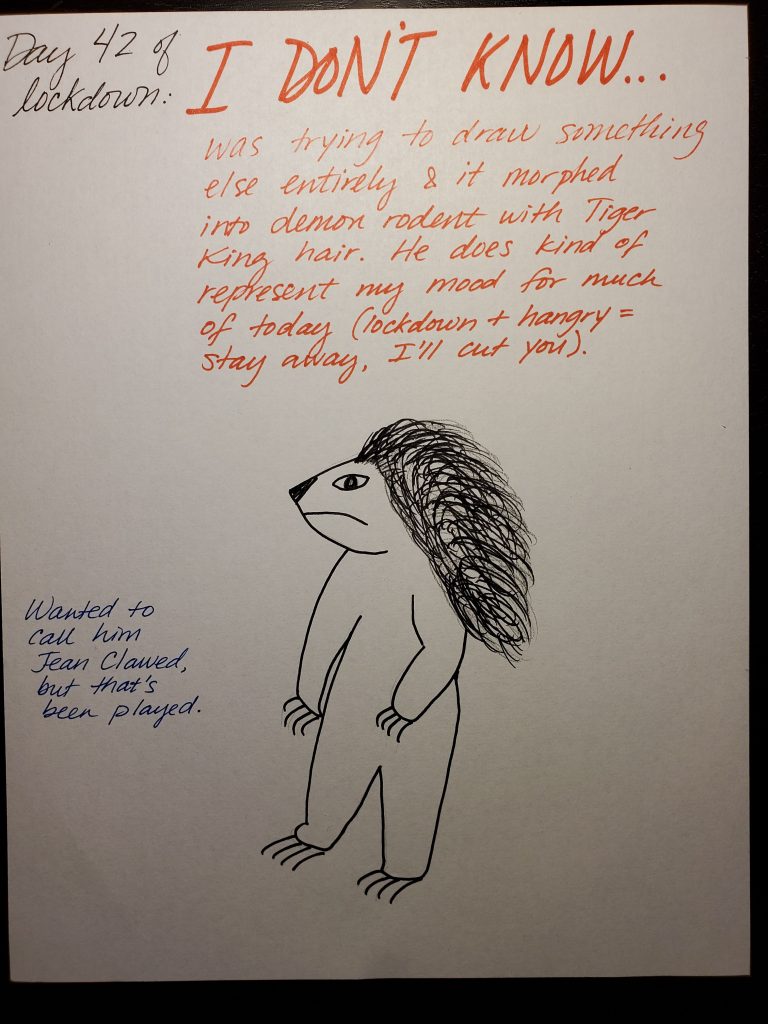 Day 42 of
lockdown:
I DON'T KNOW...
was trying to draw something
else entirely & it morphed
into demon rodent with Tiger
King hair. He does kind of
represent my mood for much
of today (lockdown + hangry =
stay away, I'll cut you).
Wanted to
call him
Jean Clawed,
but that's
been played.